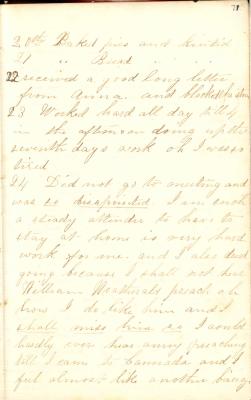 71
20th Baked pies and
21 " Bread " " " "
22 received a good long letter
from Anna. and
23 Worked hard all day till 4
in the afternoon doing up the
seventh days work oh I was so
tired
24 Did not go to meeting and
was so disapointed. I am such
a steady attender to have to
stay at home is very hard
work for me and I also did
going because I shall not hear
William preach oh
how I do like him and I
shall miss him so I would
hardly ever hear any preaching
till I came to Cannada and I
feel almost like another being